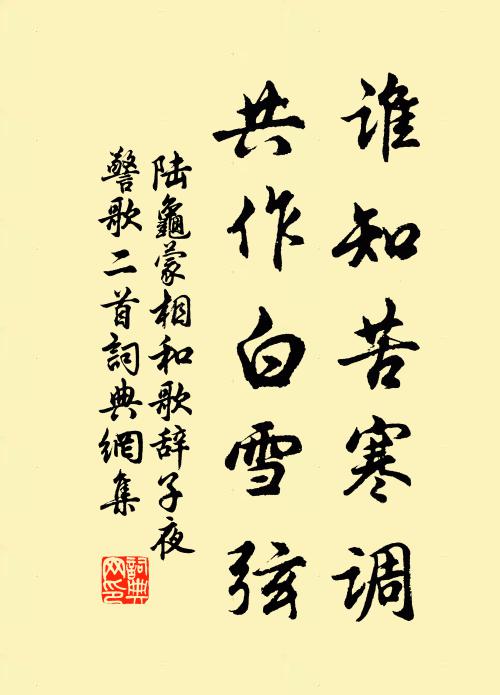 谁知苦寒调
共作白雪弦
陆龜蒙相和歌辞子夜
警歌二首词典網集
詞典网印